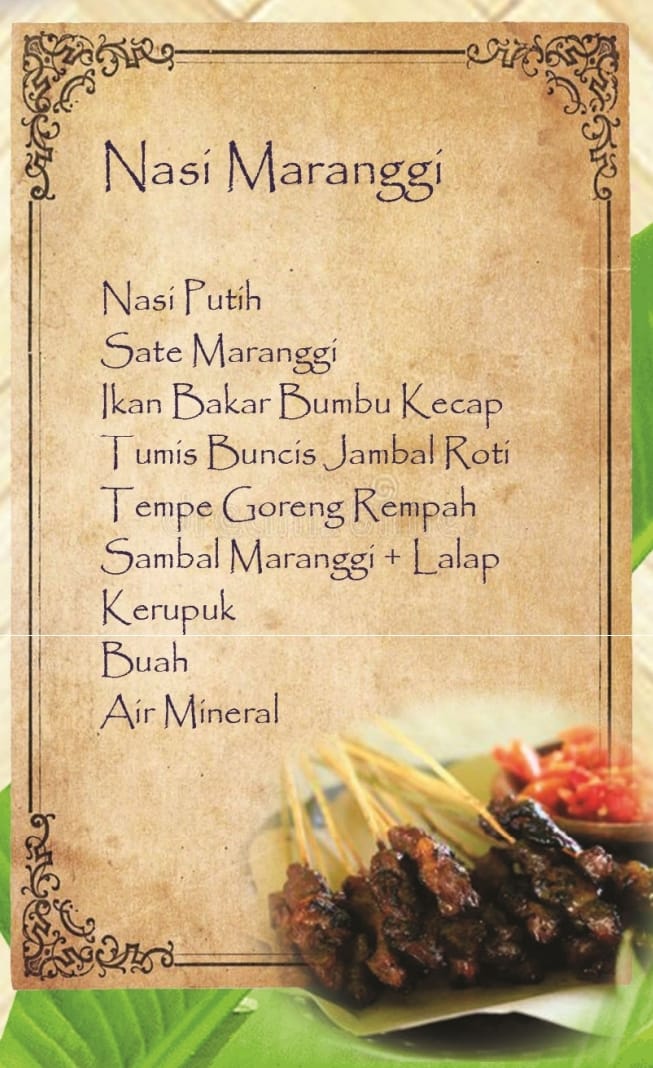 Nasi Maranggi
Nasi Putih
Sate Maranggi
Ikan Bakar Bumbu Kecap
Tumis Buncis Jambal Roti
Tempe Goreng Rempah
Sambal Maranggi + Lalap
Kerupuk
Buah
Air Mineral